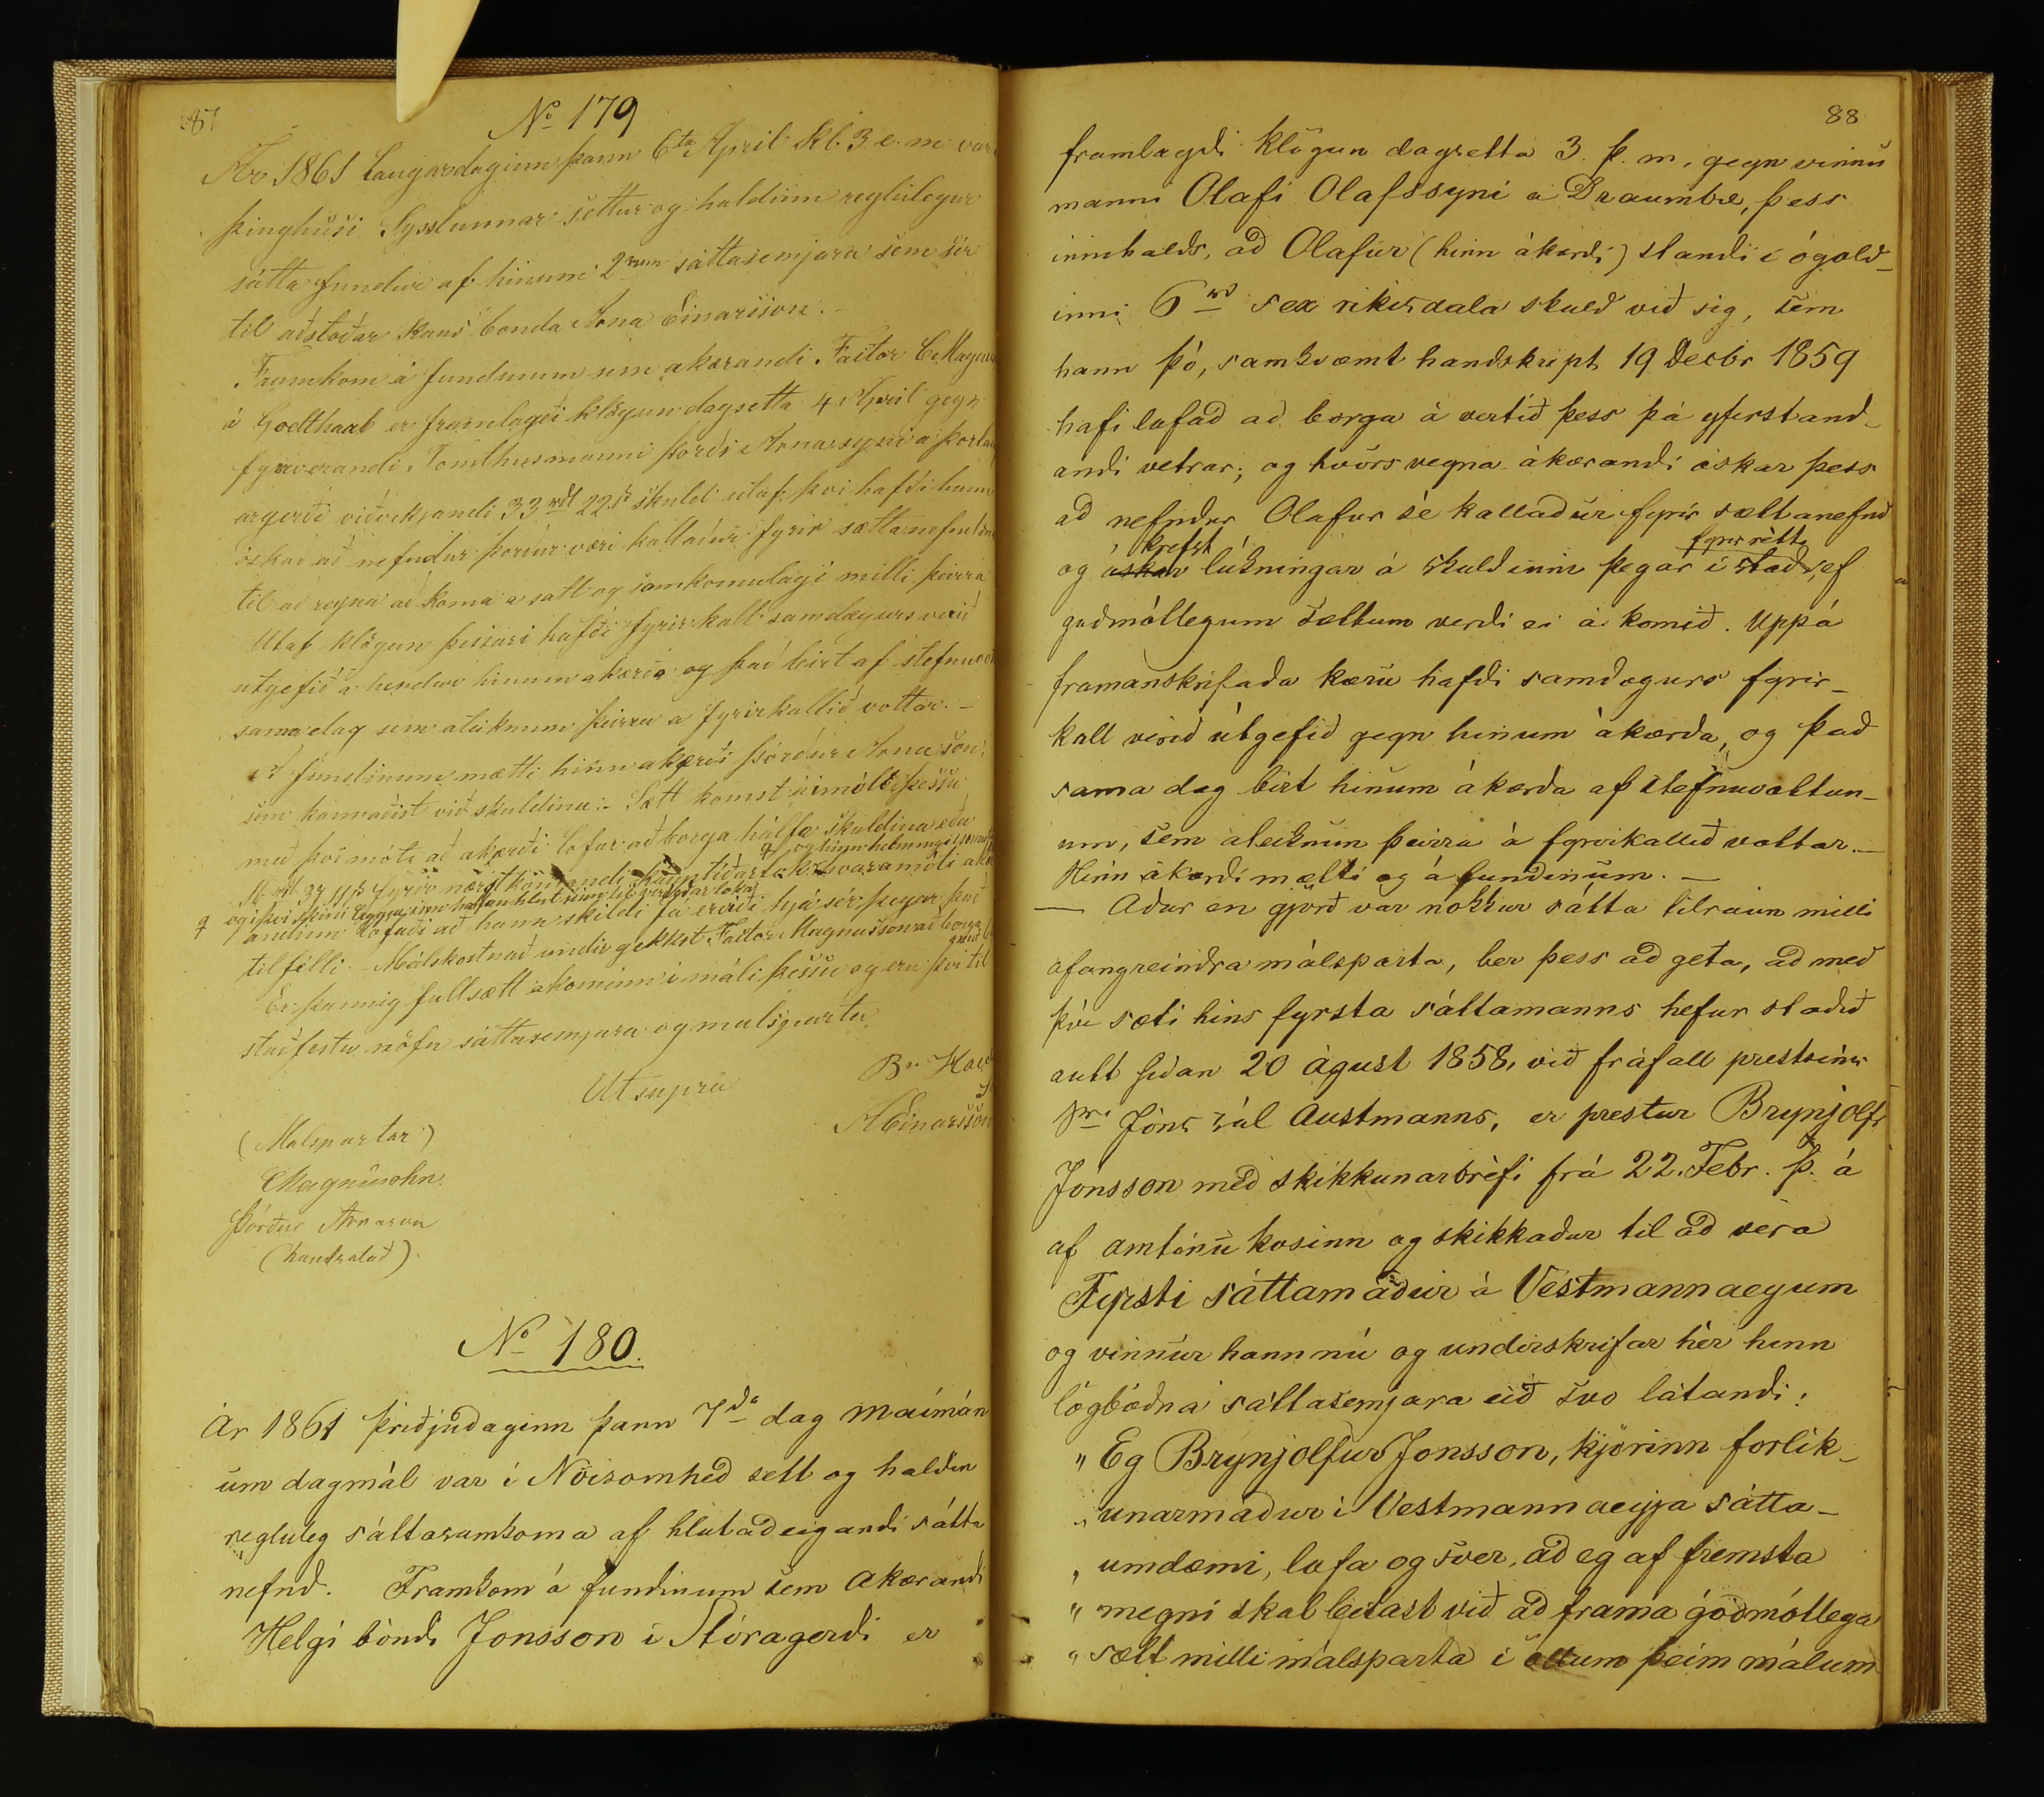 87
No 179
Ár 1861 Laugardaginn þann 6ta April kl. 3 e. m var
þinghúsi Sysslunnar settur og haldinn reglulegur
sátta fundur af hinum 2rum sáttasemjara sem sér
til aðstoðar kaus bonda Arna Einarsson.
Framkom á fundinum sem akærandi Factor C. Magnus
á Godthaab er framlagði klögun dagsetta 4 April gegn
fyrverandi Tomthusmanni Þorði Arnasyni a
viðvikjandi 33 rdl 22 s skuld utaf því hafði hann
óskað að nefndur Þorður væri kallaður fyrir sættanefndina
til að reyna að koma a satt og samkomulagi milli þeirra
Utaf klögun þessari hafði fyrirkall samdægurs verið
utgefið a hendur hinum akærða og það birt af stefnuvott
sama dag sem ateiknun þeirra a fyrirkallið vottar. –
Á fundinum mætti hinn akærði Þórður Arnason
sem kannaðist við skuldina:- Sætt komst á í máli þessu
með því móti að akærði lofar að borga hálfa skuldina eða
16 rdl fyrir næstkomandi kauptíðarlok
andinn lofaði að hann skildi fá erviði hjá sér þegar það
tilfélli. – Málskostnað undir gekkst Factor Magnusson að borga
Er þannig full sætt akominn i máli þessu og eru því til
staðfestu nöfn sáttasemjara og malsparta
Ut supra
Br.
AEinarsson
(Malspartar)
CMagnusohn
Þórður Arnason
(handsalað).
No 180.
Ár 1861 þriðjudaginn þann 7da dag Maimán
um dagmál var i Nöisomhed sett og haldin
regluleg sáttasamkoma af hlutaðeigandi sátta
nefnd. Framkom á fundinum sem Akærandi
Helgi bóndi Jonsson i Stóragerdi er
88
framlagdi klögun dagsetta 3. þ. m. gegn vinnu
manni Olafi Olafssyni a Draumbæ, þess
innihalds, að Olafur (hinn ákærdi) standi i ógold-
inni 6 rd sex rikisdala skuld við sig, sem
hann þó, samkvæmt handskript 19 Decbr 1859
hafi lofad ad borga á vertíð þess þá yfirstand-
andi vetrar; og hvörs vegna ákærandi óskar þess
að nefndur Olafur sé kalladur fyrir sættanefnd
krefst fyrir rétti
og askar lúkningar á skuldinni þegar i stad, ef
gudmóllegum sættum verdi ei á komið. Uppá
framanskrifada kæru hafdi samdægurs fyrir-
kall verid útgefið gegn hinum ákærda, og það
sama dag birt hinum ákærda af stefnuvottun-
um, sem ateiknun þeirra á fyrirkallið vottar. –
Hinn ákærdi mætti og á fundinum. –
– Adur en gjörð var nokkur sátta tilraun milli
ofangreindra málsparta, ber þess að geta, að með
því sæti hins fyrsta sáttamanns hefur stadid
autt sidan 20 águst 1858, við fráfall prestsins
sra Jóns sál Austmanns, er prestur Brynjolfr
Jonsson með skikkunarbréfi frá 22. Febr. þ. á
af amtinu kosinn og skikkadur til að vera
Fyrsti sáttamadur á Vestmannaeyum
og vinnur hann nú og undirskrifar hér hinn
lögbodna sáttasemjara eið svo látandi:
„ Eg Brynjolfur Jonsson, kjörinn forlik-
„ unarmadur i Vestmannaeyja sátta-
„ umdæmi, lofa og sver, að eg af fremsta
„ megni skal leitast við að frama góðmótlega
„ sætt milli málsparta i öllum þeim málum